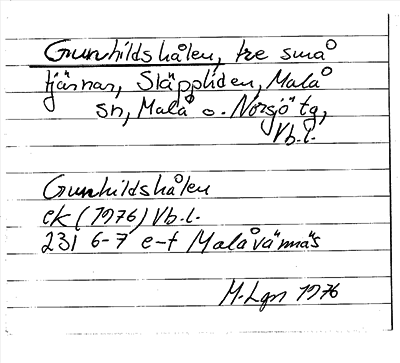 Gunnhildshålen, tre små
tjärnar, Släppliden, Malå
sn, Malå o. Norsjö tg,
Vb.l.
Gunnhildshålen
ek (1976) Vb.l.
23I 6-7 e-f Malåvännäs
M. Lgn 1976